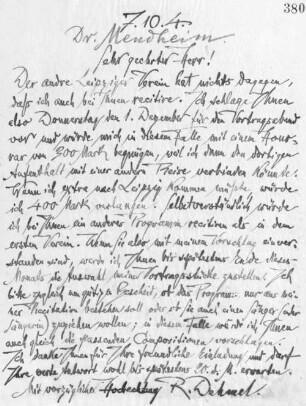 380
7.10.4.
Dr. Mendheim
Sehr geehrter Herr!
Der andre Leipziger Verein hat nichts dagegen,
daß ich auch bei Ihnen recitire. Ich schlage Ihnen
also Donnerstag, den 1. Dezember für den Vortragsabend
vor und würde mich in diesem Falle mit einem Hono-
rar von 300 Mark begnügen, weil ich dann den dortigen
Aufenthalt mit einer andern Reise verbinden könnte.
Wenn ich extra nach Leipzig kommen müßte, würde
ich 400 Mark verlangen. Selbstverständlich würde
ich bei Ihnen ein anderes Programm recitiren als in dem
ersten Verein. Wenn Sie also mit meinem Vorschlag einver-
standen sind, werde ich Ihnen bis spätestens Ende dieses
Monats die Auswahl meiner Vortragsstücke zustellen. Ich
bitte zugleich um gütigen Bescheid, ob das Programm nur aus
Recitation bestehen soll oder ob Sie auch einen Sänger oder
Sängerin zuziehen wollen; in diesem Falle würde ich Ihnen
auch gleich die passenden Compositionen vorschlagen.
Ich danke Ihnen für Ihre freundliche Einladung und darf
Ihre Antwort wohl bis spätestens 20. d. M. erwarten.
Mit vorzüglicher Hochachtung R. Dehmel.